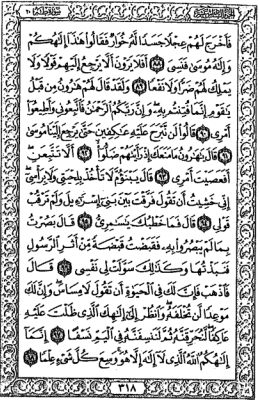 الجزء السادس عشر سورة طه ٢٠
فَأَخْرَجَ لَهُمْ عِجْلًا جَسَدًا لَّهُۥ خُوَارٌ فَقَالُوا۟ هَٰذَآ إِلَٰهُكُمْ
وَإِلَٰهُ مُوسَىٰ فَنَسِىَ ٨٨ أَفَلَا يَرَوْنَ أَلَّا يَرْجِعُ إِلَيْهِمْ قَوْلًا وَلَا
يَمْلِكُ لَهُمْ ضَرًّا وَلَا نَفْعًا ٨٩ وَلَقَدْ قَالَ لَهُمْ هَٰرُونُ مِن قَبْلُ
يَٰقَوْمِ إِنَّمَا فُتِنتُم بِهِۦ وَإِنَّ رَبَّكُمُ ٱلرَّحْمَٰنُ فَٱتَّبِعُونِى وَأَطِيعُوٓا۟
أَمْرِى ٩٠ قَالُوا۟ لَن نَّبْرَحَ عَلَيْهِ عَٰكِفِينَ حَتَّىٰ يَرْجِعَ إِلَيْنَا مُوسَىٰ
٩١ قَالَ يَٰهَٰرُونُ مَا مَنَعَكَ إِذْ رَأَيْتَهُمْ ضَلُّوٓا۟ ٩٢ أَلَّا تَتَّبِعَنِ
أَفَعَصَيْتَ أَمْرِى ٩٣ قَالَ يَبْنَؤُمَّ لَا تَأْخُذْ بِلِحْيَتِى وَلَا بِرَأْسِىٓ
إِنِّى خَشِيتُ أَن تَقُولَ فَرَّقْتَ بَيْنَ بَنِىٓ إِسْرَٰٓءِيلَ وَلَمْ تَرْقُبْ
قَوْلِى ٩٤ قَالَ فَمَا خَطْبُكَ يَٰسَٰمِرِىُّ ٩٥ قَالَ بَصُرْتُ
بِمَا لَمْ يَبْصُرُوا۟ بِهِۦ فَقَبَضْتُ قَبْضَةً مِّنْ أَثَرِ ٱلرَّسُولِ
فَنَبَذْتُهَا وَكَذَٰلِكَ سَوَّلَتْ لِى نَفْسِى ٩٦ قَالَ
فَٱذْهَبْ فَإِنَّ لَكَ فِى ٱلْحَيَوٰةِ أَن تَقُولَ لَا مِسَاسَ وَإِنَّ لَكَ
مَوْعِدًا لَّن تُخْلَفَهُۥ وَٱنظُرْ إِلَىٰٓ إِلَٰهِكَ ٱلَّذِى ظَلْتَ عَلَيْهِ
عَاكِفًا لَّنُحَرِّقَنَّهُۥ ثُمَّ لَنَنسِفَنَّهُۥ فِى ٱلْيَمِّ نَسْفًا ٩٧ إِنَّمَآ
إِلَٰهُكُمُ ٱللَّهُ ٱلَّذِى لَآ إِلَٰهَ إِلَّا هُوَ وَسِعَ كُلَّ شَىْءٍ عِلْمًا ٩٨
٣١٨